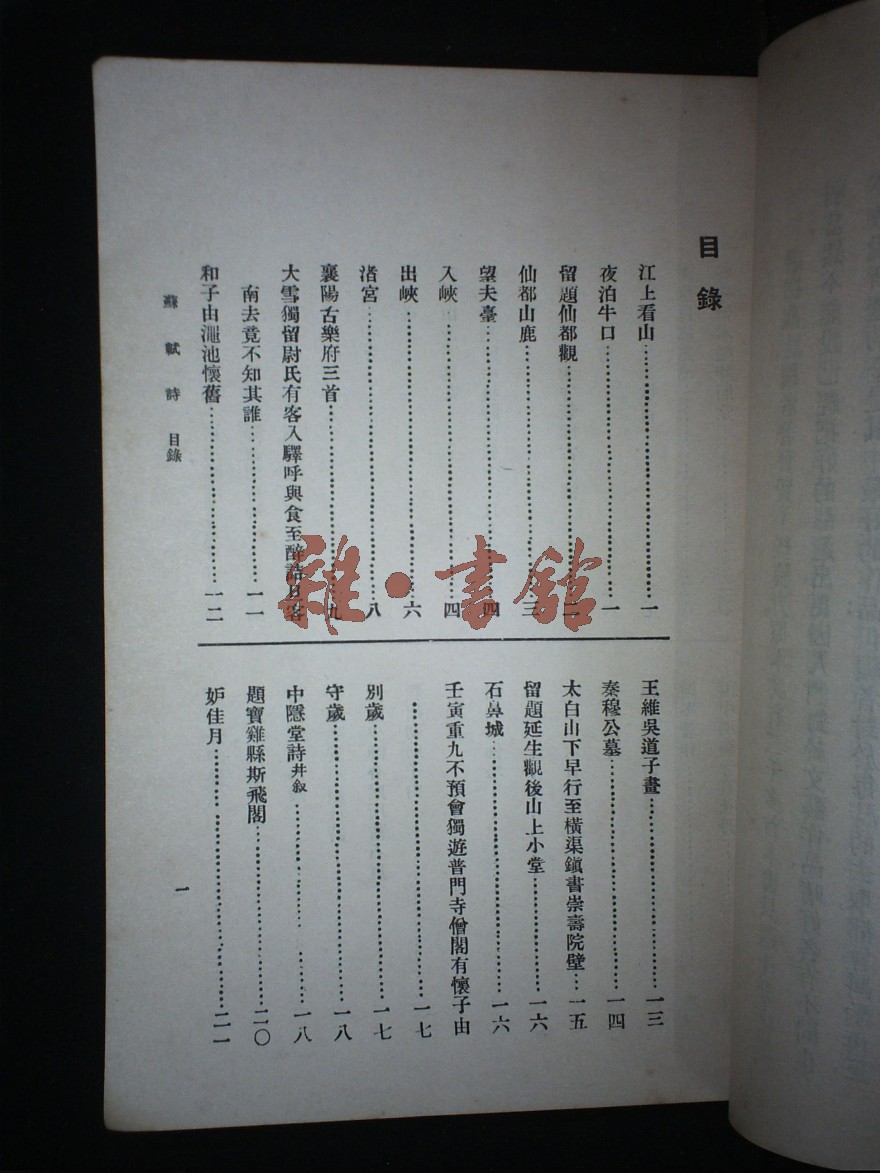 目錄
江上看山……一
夜泊牛口……一
留題仙都觀……二
仙都山鹿……三
望夫臺……四
入峽……四
出峽……六
渚宮……八
襄陽古樂府三首……九
大雪獨留尉氏有客入驛呼與食至醉詰旦客
南去竟不知其誰……一一
和子由澠池懷舊……一二
王維吳道子畫……一三
秦穆公墓……一四
太白山下早行至橫渠鎮書崇壽院壁…一五
留題延生觀後山上小堂……一六
石鼻城……一六
壬寅重九不預會獨遊普門寺僧閣有懷子由
……一七
別歲……一七
守歲……一八
中隱堂詩并叙……一八
題寶雞縣斯飛閣……二〇
妒佳月……二一
蘇軾詩 目錄
一
雜·書館